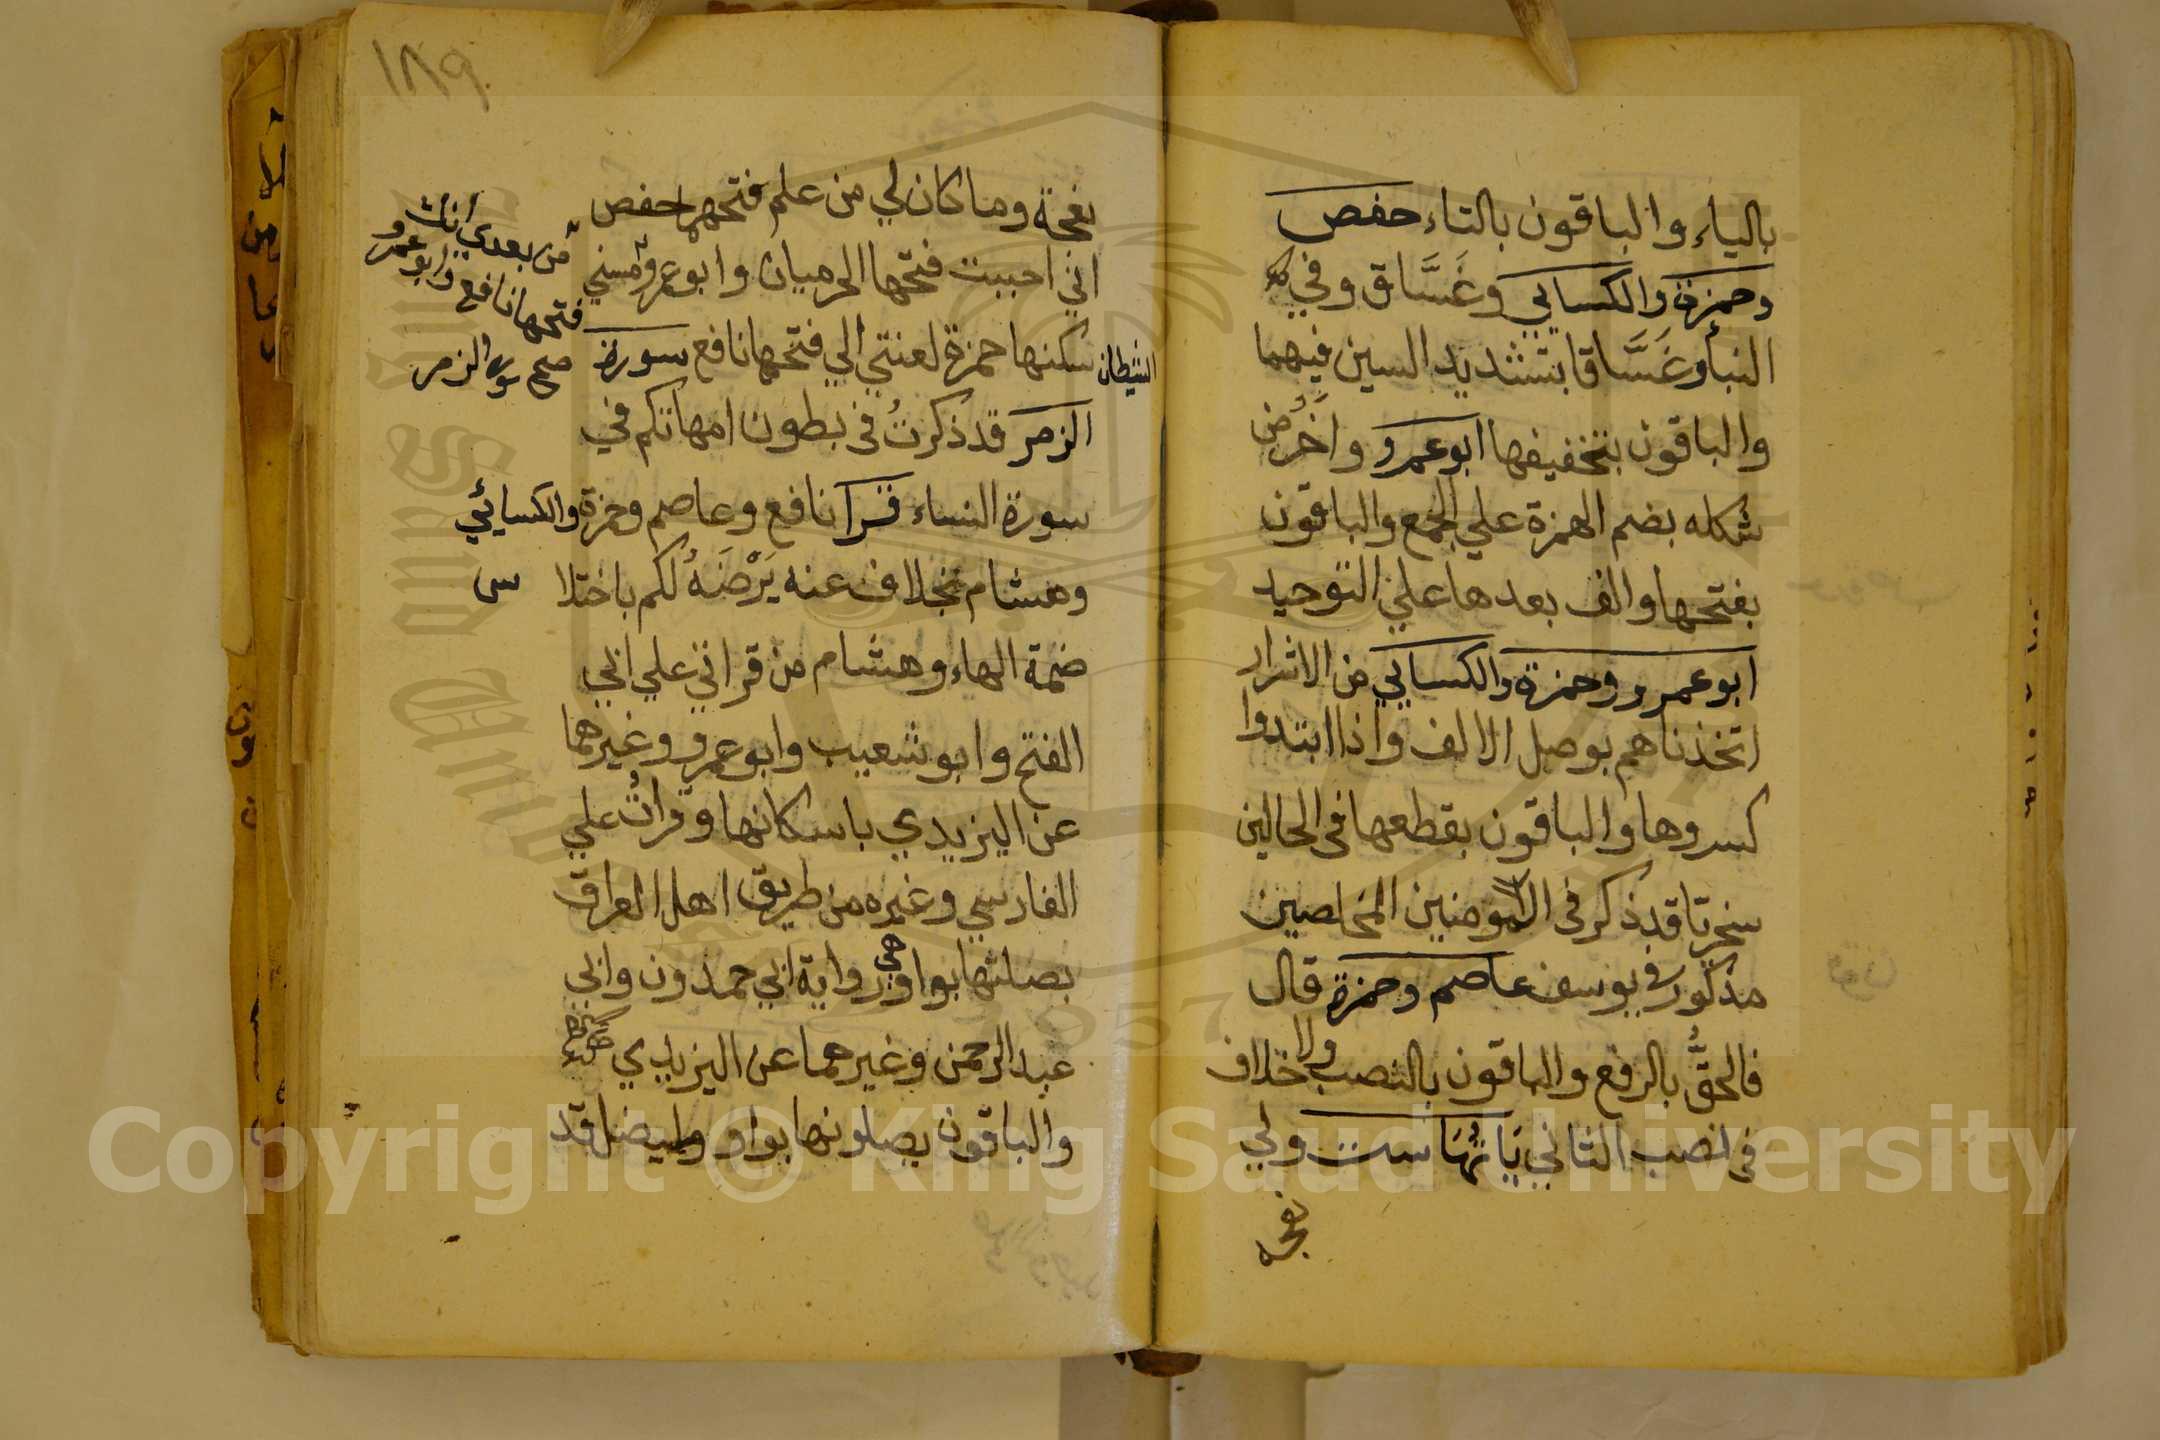 بالياء والباقون بالتاء حفص
وحمزة والكسايي وغَسَّاق وفي
النبأ وغَسَّاقا بتشديد السين فيهما
والباقون بتخفيفها ابو عمرو واُخَرُ من
شكله بضم الهمزة علي الجمع والباقون
بفتحها والف بعدها علي التوحيد
ابو عمرو وحمزة والكسايي من الاشرار
اتخذناهم بوصل الالف واذا ابتدوا
كسروها والباقون بقطعها في الحالين
سخريا قد ذكر في المومنين المخلصين
مذكور في يوسف عاصم وحمزة قال
فالحقُّ بالرفع والباقون بالنصب ولا خلاف
في نصب الثاني يَاتُهَا ست ولي
نعجه
١٨٩
نعجة وما كان لي من علم فتحهما حفص
اني احببت فتحها الحرميان وابو عمرو مسني
الشيطان سكنها حمزة لعنتي الي فتحها نافع سورة
الزمر قد ذكرتُ في بطون امهاتكم في
سورة النساء قرا نافع وعاصم وحمزة والكسائي
وهشام بخلاف عنه يَرْضَهُ لكم باختلاس
ضمة الهاء وهشام من قراتي علي ابي
الفتح وابو شعيب وابو عمرو وغيرهما
عن اليزيدي باسكانها وقراتُ علي
الفارسي وغيره من طريق اهل العراق
بصلتها بواو وهي رواية ابي حمدون وابي
عبد الرحمن وغيرهما عن اليزيدي
والباقون يصلونها بواو وليضل قد
من بعدي انك
فتحها نافع وابو عمرو
صح سورة الزمر
Copyright © King Saud University
1957